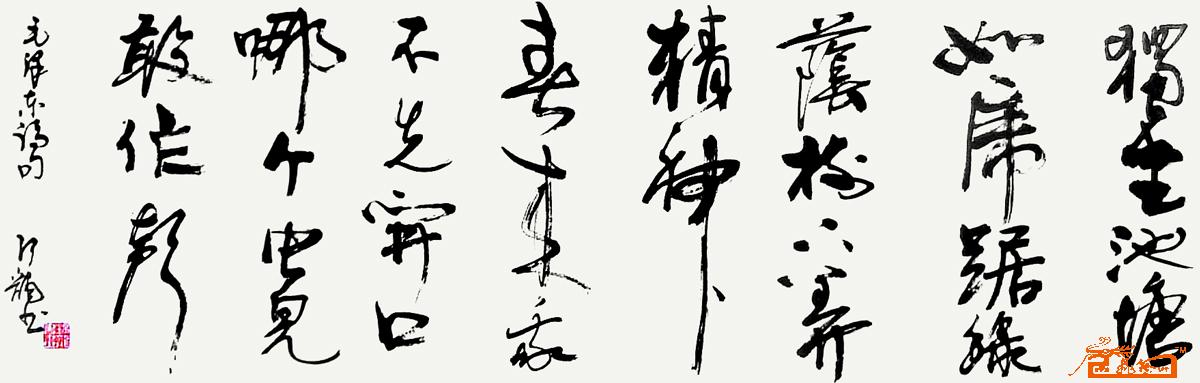 獨坐池塘
如虎踞綠
蔭樹下養
精神
春来我
不先開口
哪个虫兒
敢作聲
毛澤东詩句